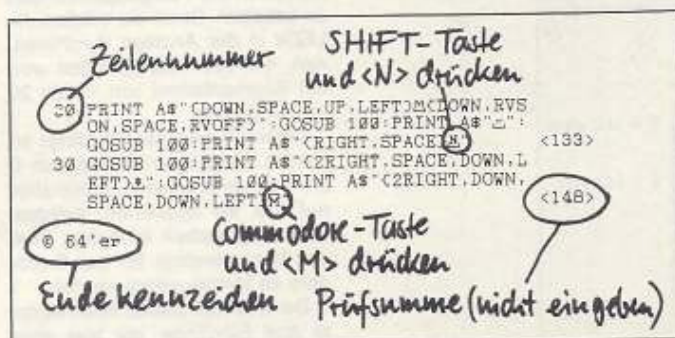 Zeilennummer
SHIFT-Taste
und <N> drücken
20 PRINT A$"{DOWN,SPACE,UP,LEFT}M{DOWN,RVS
ON,SPACE,RVOFF}":GOSUB 100:PRINT A$"":
GOSUB 100:PRINT A$"{RIGHT,SPACE}N" <133>
30 GOSUB 100:PRINT A$"{2RIGHT,SPACE,DOWN,L
EFT}":GOSUB 100:PRINT A$"{2RIGHT,DOWN,
SPACE,DOWN,LEFT}M" <148>
© 64'er
Commodore-Taste
und <M> drücken
Endekennzeichen
Prüfsumme (nicht eingeben)